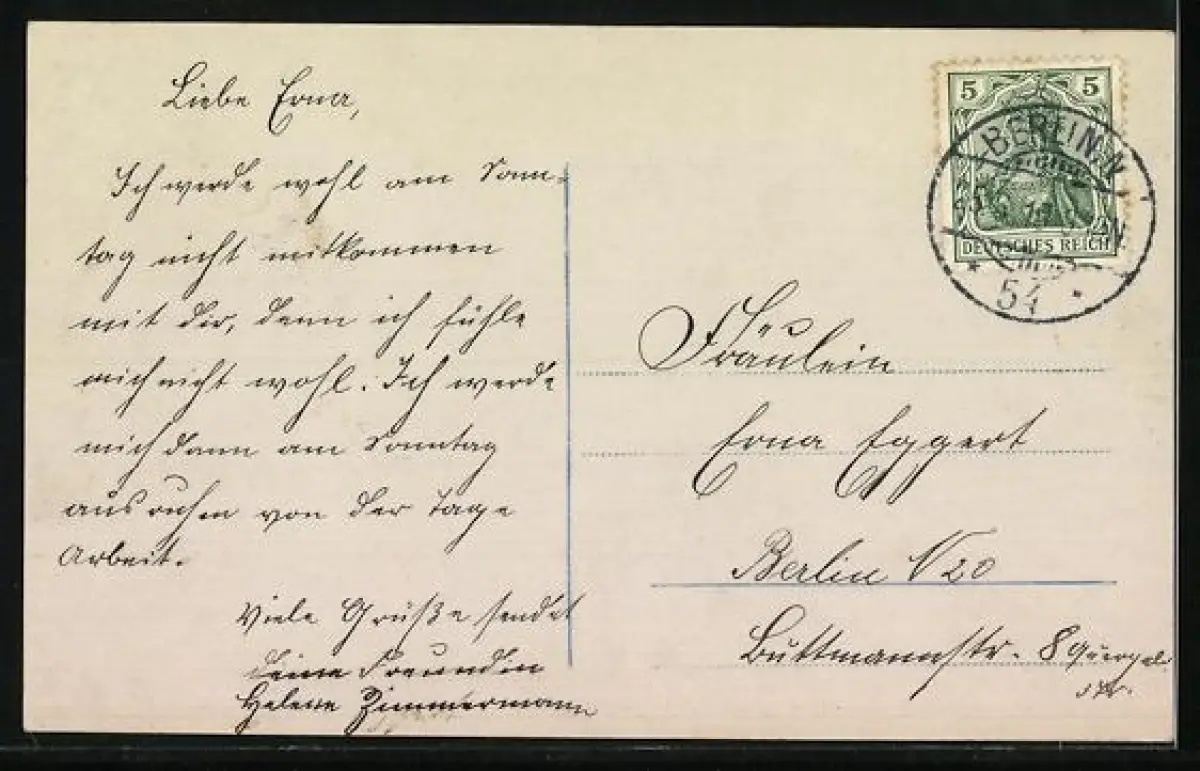 Liebe Erna,
Ich werde wohl am Sonn-
tag nicht mitkommen
mit dir, denn ich fühle
mich nicht wohl. Ich werde
mich dann am Sonntag
ausruhen von der Tage
Arbeit.
Viele Grüße sendet
deine Freundin
Helene Zimmermann
5 5
DEUTSCHES REICH
BERLIN N
54
Fräulein
Erna Eggert
Berlin N 20
Buttmannstr. 8 Quergeb.